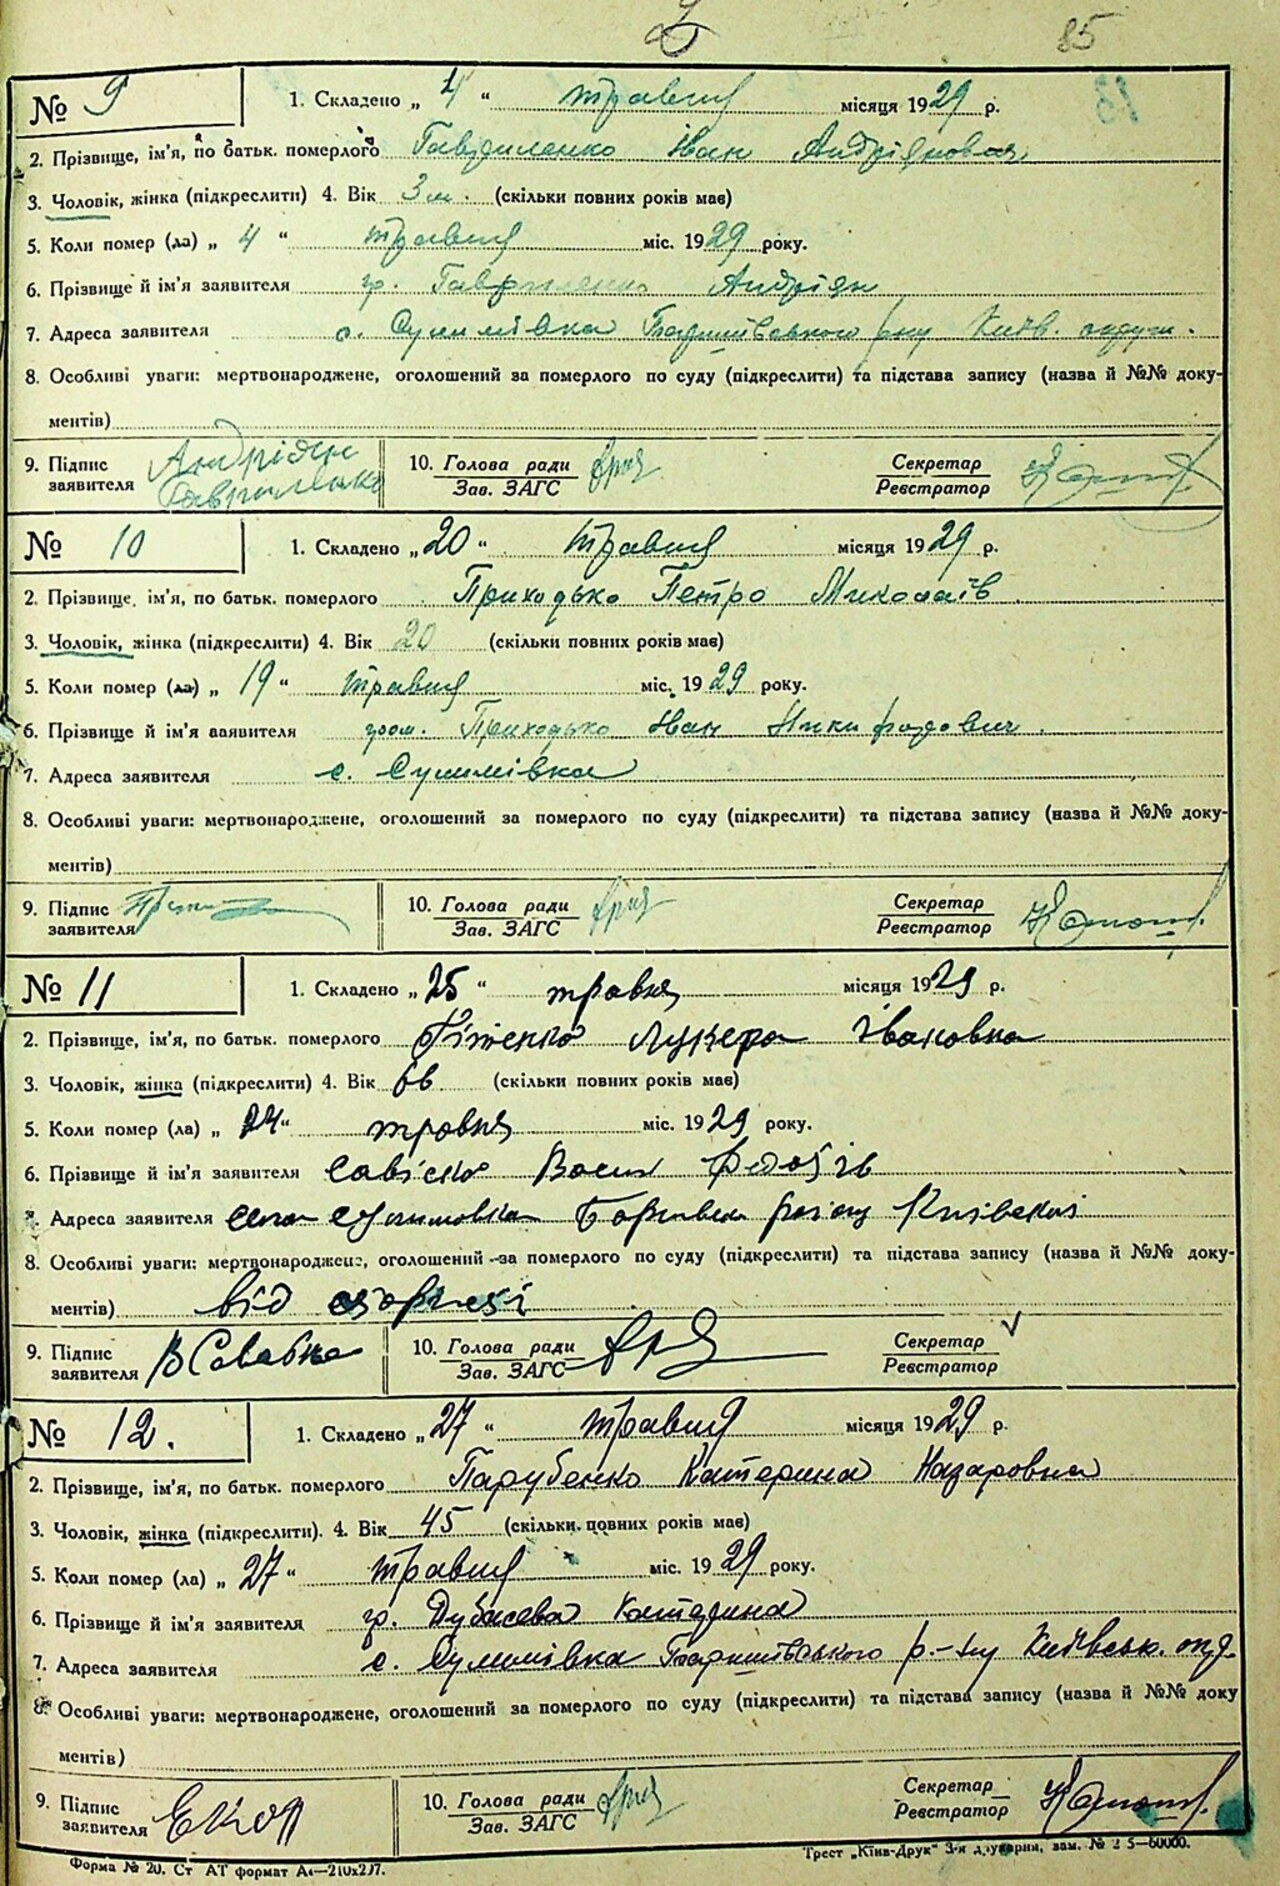 85
№ 9 1. Складено „ 4 “ травня місяця 1929 р.
2. Прізвище, ім'я, по батьк. померлого Гавриленко Іван Андріянович
3. Чоловік, жінка (підкреслити) 4. Вік 3 м. (скільки повних років має)
5. Коли помер (ла) „ 4 “ травня міс. 1929 року.
6. Прізвище й ім'я заявителя гр. Гавриленко Андріян
7. Адреса заявителя с. Сулимівка Баришівського р-ну Київ. округи.
8. Особливі уваги: мертвонароджене, оголошений за померлого по суду (підкреслити) та підстава запису (назва й №№ доку-
ментів)
9. Підпис заявителя Андріян Гавриленко 10. Голова ради Зав. ЗАГС Секретар Реєстратор
№ 10 1. Складено „ 20 “ травня місяця 1929 р.
2. Прізвище, ім'я, по батьк. померлого Приходько Петро Миколаїв
3. Чоловік, жінка (підкреслити) 4. Вік 20 (скільки повних років має)
5. Коли помер (ла) „ 19 “ травня міс. 1929 року.
6. Прізвище й ім'я заявителя гром. Приходько Іван Никифорович
7. Адреса заявителя с. Сулимівка
8. Особливі уваги: мертвонароджене, оголошений за померлого по суду (підкреслити) та підстава запису (назва й №№ доку-
ментів)
9. Підпис заявителя 10. Голова ради Зав. ЗАГС Секретар Реєстратор
№ 11 1. Складено „ 25 “ травня місяця 1929 р.
2. Прізвище, ім'я, по батьк. померлого Лукера Івановна
3. Чоловік, жінка (підкреслити) 4. Вік 66 (скільки повних років має)
5. Коли помер (ла) „ 24 “ травня міс. 1929 року.
6. Прізвище й ім'я заявителя
7. Адреса заявителя село Сулимовка району
8. Особливі уваги: мертвонароджене, оголошений за померлого по суду (підкреслити) та підстава запису (назва й №№ доку-
ментів) від старості
9. Підпис заявителя 10. Голова ради Зав. ЗАГС Секретар Реєстратор
№ 12. 1. Складено „ 27 “ травня місяця 1929 р.
2. Прізвище, ім'я, по батьк. померлого Парубенко Катерина Назаровна
3. Чоловік, жінка (підкреслити). 4. Вік 45 (скільки повних років має)
5. Коли помер (ла) „ 27 “ травня міс. 1929 року.
6. Прізвище й ім'я заявителя гр. Дубасева Катерина
7. Адреса заявителя с. Сулимівка Баришівського р-ну Київськ. окр.
8. Особливі уваги: мертвонароджене, оголошений за померлого по суду (підкреслити) та підстава запису (назва й №№ доку
ментів)
9. Підпис заявителя 10. Голова ради Зав. ЗАГС Секретар Реєстратор
Форма № 20. Ст АТ формат А4—210х297. Трест „Київ-Друк“ 3-я друкарня, зам. №